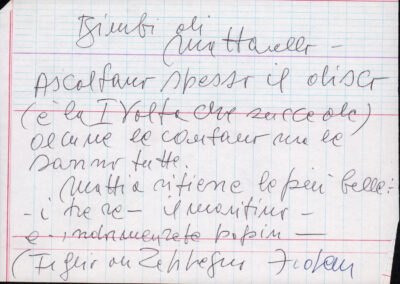 Bimbi di
Mattarello -
Ascoltano spesso il disco
(è la I volta che succede)
alcune le cantano ma le
sanno tutte.
Mattia ritiene le più belle:
- i tre re - il maritino -
e addormentate popin -
(Figli